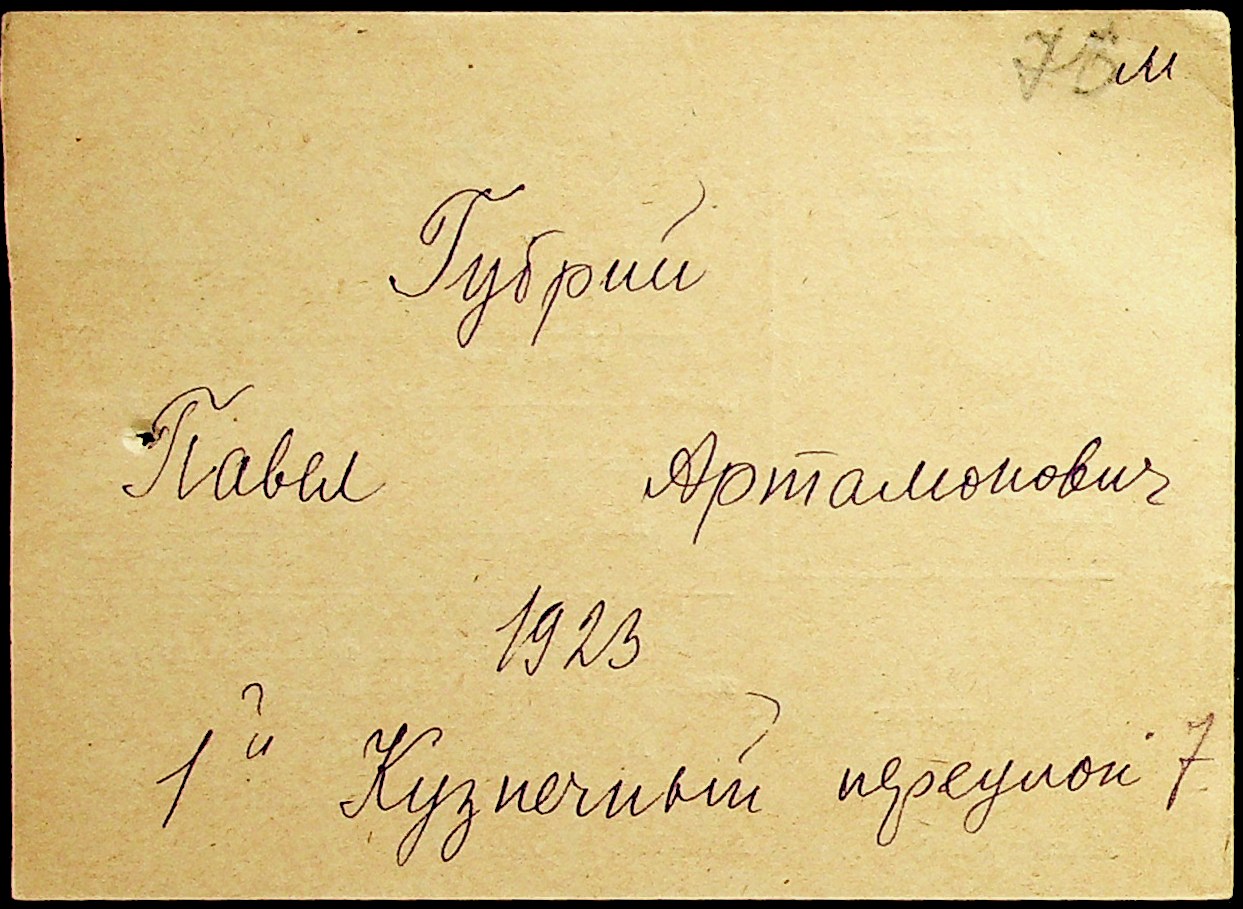 м
Губрий
Павел Артамонович
1923
1й Кузнечный переулок 7